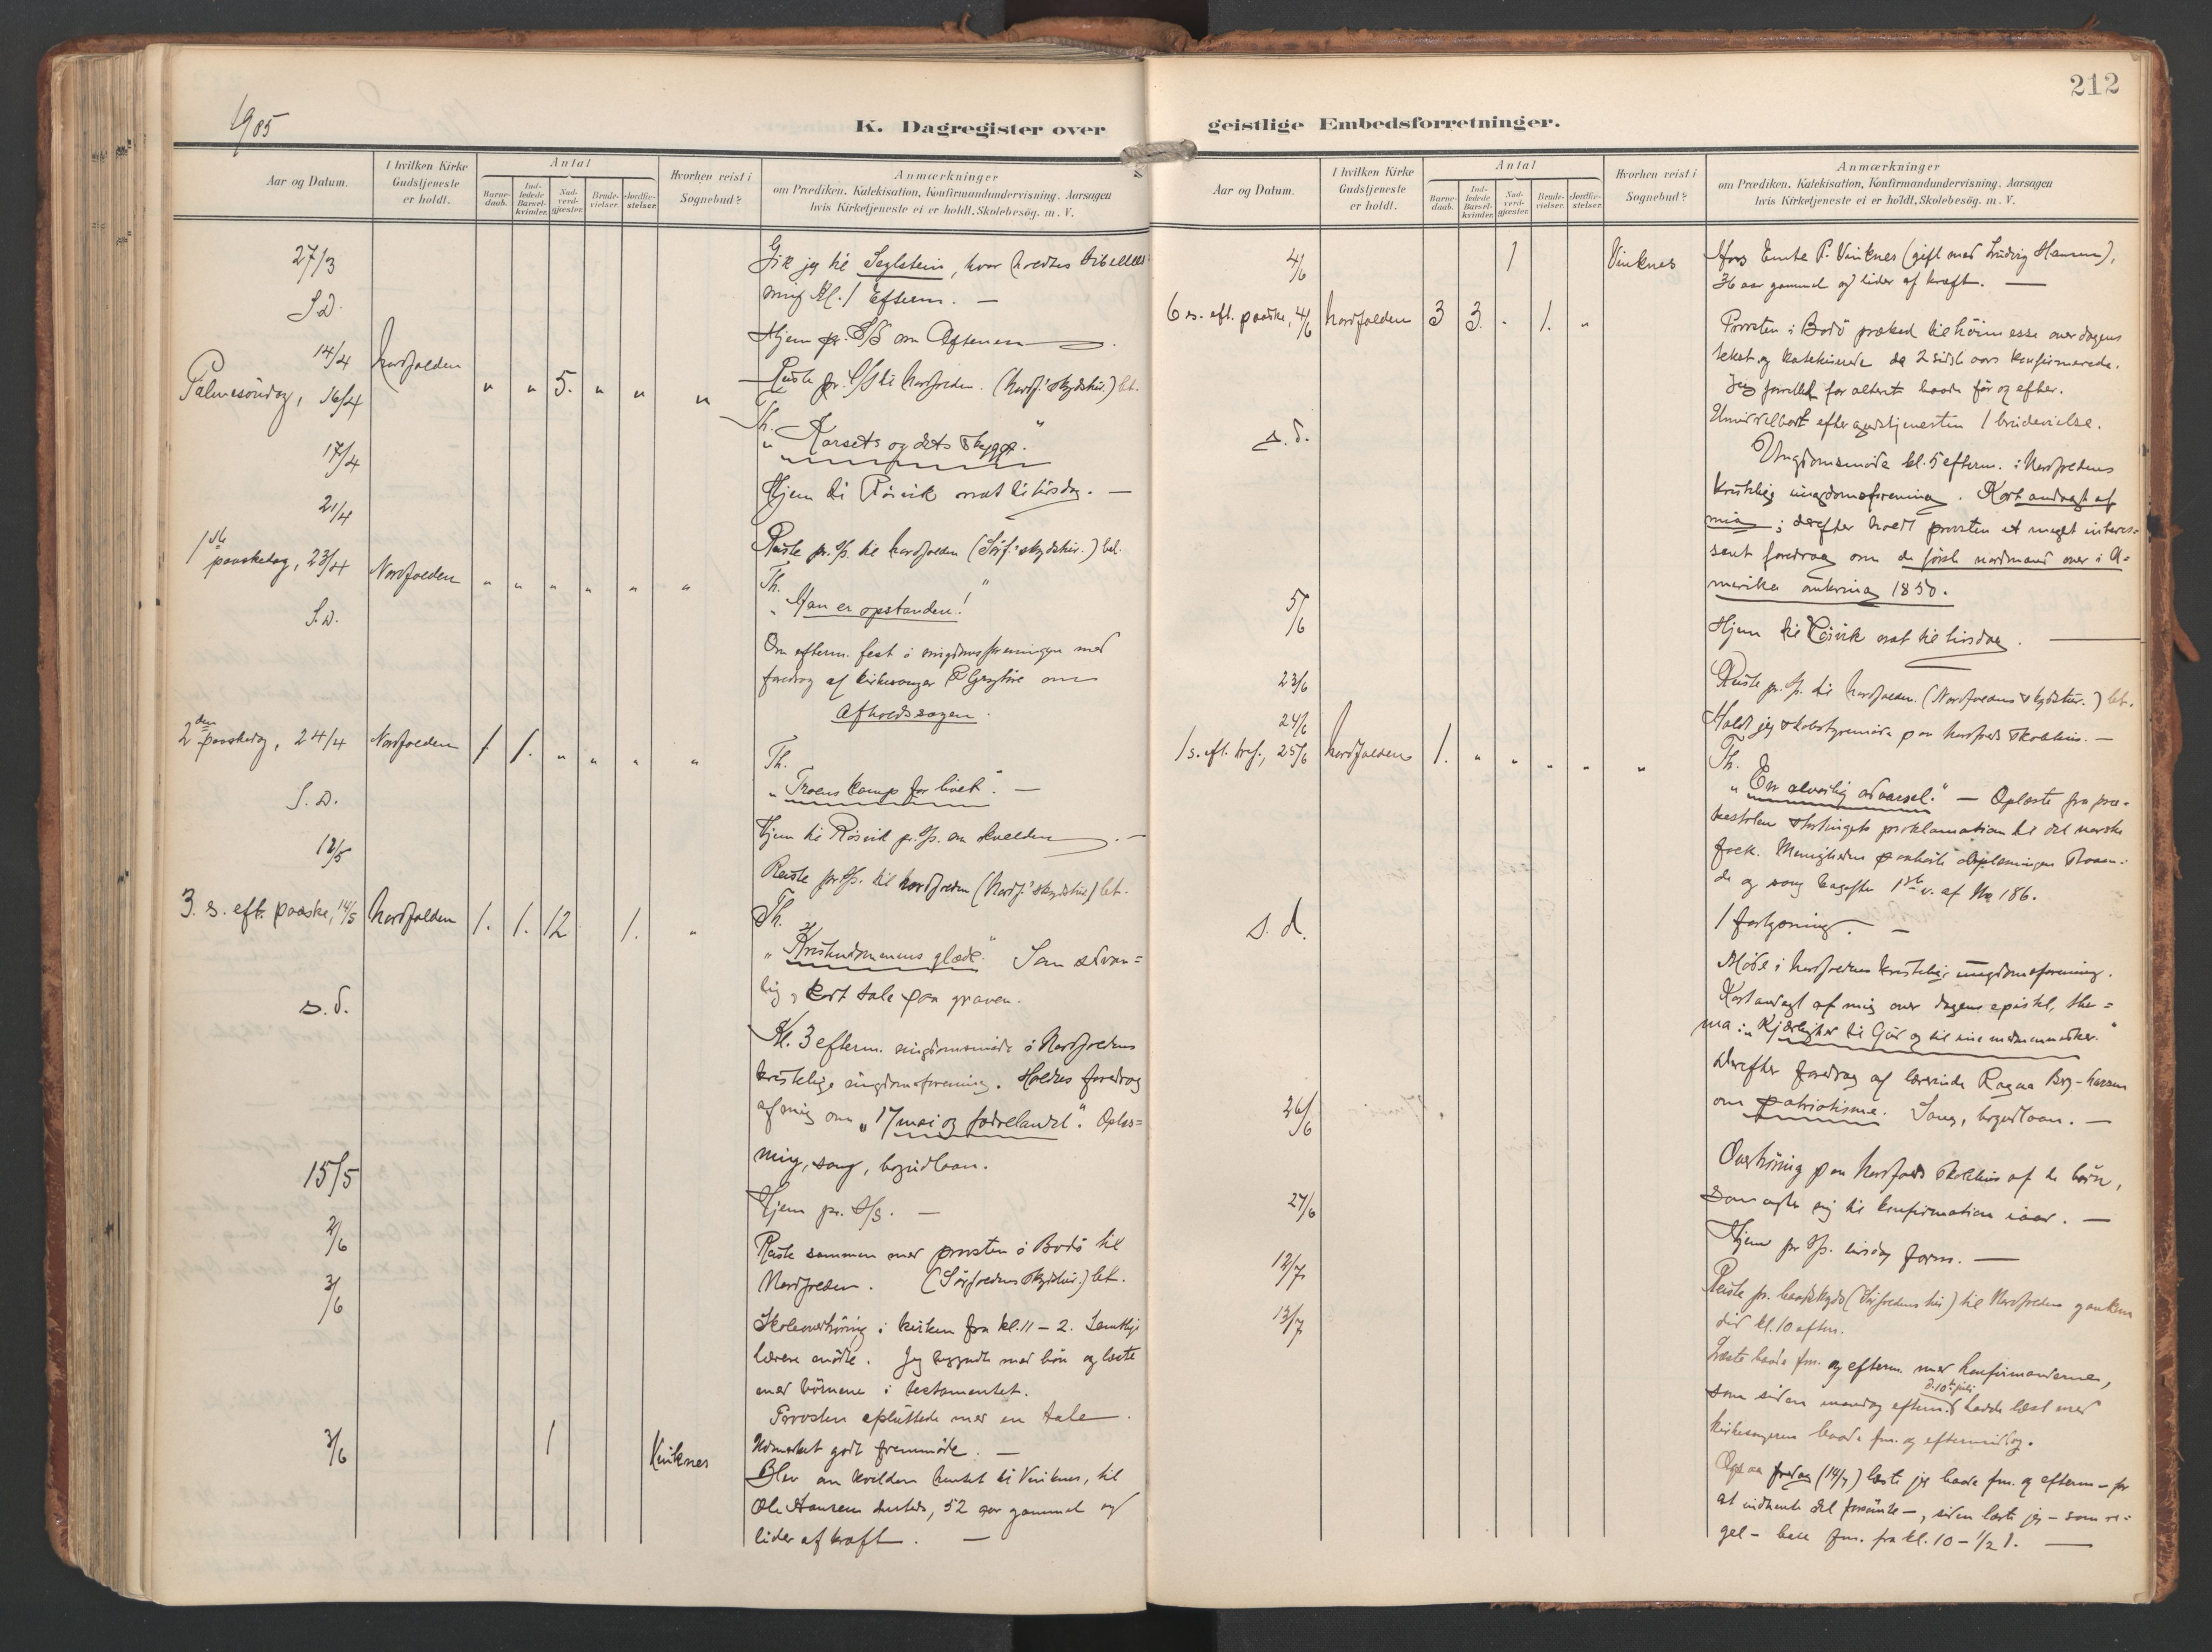 1905
K. Dagregister over
Aar og Datum.
I hvilken Kirke Gudstjeneste er holdt.
Antal
Barne-daab.
Ind-ledede Barsel-kvinder.
Nad-verd-gjester.
Brude-vielser.
Jordfæ-stelser.
Hvorhen reist i Sognebud?
Anmærkninger
om Prædiken, Katekisation, Konfirmandundervisning. Aarsagen
hvis Kirketjeneste ei er holdt. Skolebesög. m. V.
27/3 Gik jeg til Seglstein, hvor holdtes
Kl. 1 Efterm. —
S.D. Hjem pr. S/S om Aftenen
14/4 Reiste pr. S/S til Nordfolden. (Nordf.' skydsskur.) bet.
Palmesöndag, 16/4 Nordfolden " " 5. " " " Th.
"Korsets og dets Skygge."
17/4 Hjem til Rösvik nat til tirsdag. —
21/4 Reiste pr. S/s. til Nordfolden (Sörf.' skydsskur.) bet.
1ste paaskedag, 23/4 Nordfolden " " " " " " Th.
"Han er opstanden!"
S.D. Om efterm. fest i ungdomsforeningen med
foredrag af kirkesanger om
Afholdssagen.
2den paaskedag, 24/4 Nordfolden 1 1. " " " " Th.
"Troens kamp for livet". —
S.D. Hjem til Rösvik pr. S/s. om kvelden. —
12/5 Reiste pr S/s. til Nordfolden (Nordf.' skydsskur.) bet.
3. s. eft. paaske, 14/5 Nordfolden 1. 1. 12 1. " Th.
"Kristendommens glæde." Som sedvan=
lig, kort tale paa graven.
s.d. Kl. 3 efterm. ungdomsmöde i Nordfoldens
kristelige ungdomsforening. Holdtes foredrag
af mig om "17 mai og fædrelandet". Oplæs=
ning, sang, bogudlaan.
15/5 Hjem pr. S/s. —
2/6 Reiste sammen med provsten i Bodö til
Nordfolden. (Sörfoldens skydsskur.) bet.
3/6 Skoleoverhöring i kirken fra kl. 11 – 2. Samtlige
lærere mödte. Jeg begyndte med bön og læste
med börnene i testamentet.
Provsten afsluttede med en tale.
Udmerket godt fremmöde. —
3/6 1 Vinknes Blev om kvelden hentet til Vinknes, til
Ole Hansen dersteds, 52 aar gammel og
lider af kræft. —
212
geistlige Embedsforretninger.
Aar og Datum.
I hvilken Kirke Gudstjeneste er holdt.
Antal
Barne-daab.
Ind-ledede Barsel-kvinder.
Nad-verd-gjester.
Brude-vielser.
Jordfæ-stelser.
Hvorhen reist i Sognebud?
Anmærkninger
om Prædiken, Katekisation, Konfirmandundervisning. Aarsagen
hvis Kirketjeneste ei er holdt. Skolebesög. m. V.
4/6 1 Vinknes Hos P. Vinknes (gift med Ludvig Hansen),
36 aar gammel og lider af kræft. —
6 s. eft. paaske, 4/6 Nordfolden 3 3. " 1. " Provsten i Bodö præked til höimesse over dagens
tekst og katekiserede de 2 sidste aars konfirmerede.
Jeg forrettet for alteret baade för og efter.
Umiddelbart efter gudstjenesten 1 brudevielse.
s.d. Ungdomsmöde kl. 5 efterm. i Nordfoldens
kristelige ungdomsforening. Kort andagt af
mig; derefter holdt provsten et meget interes=
sant foredrag om de förste nordmænd over i A=
merika omkring 1850.
5/6 Hjem til Rösvik nat til tirsdag. —
23/6 Reiste pr. S/s. til Nordfolden. (Nordfoldens skydsskur.) bet.
24/6 Holdt jeg skolestyremöde paa Nordfold skolehus. —
1 s. eft. tref., 25/6 Nordfolden 1. " " " " " Th.
"En alvorlig advarsel." — Oplæste fra præ-
kestolen stortingets proklamation til det norske
folk. Menigheden paahörte oplæsningen staaen-
de og sang bagefter 1ste v. af No 186.
1 forlysning. —
s.d. Möde i Nordfoldens kristelige ungdomsforening.
Kort andagt af mig over dagens epistel, the=
ma: "Kjærlighed til Gud og til sine medmennesker."
Derefter foredrag af lærerinde Ragna Berg-Hansen
om patriotisme. Sang, bogudlaan. —
26/6 Overhöring paa Nordfold skolehus af de börn,
som agter sig til konfirmation iaar. —
27/6 Hjem pr S/s. tirsdag form. —
12/7 Reiste pr. baadskyds (Sörfoldens skur) til Nordfolden
did kl. 10 aften.
13/7 Læste baade fm. og efterm. med konfirmanderne,
som siden mandag efterm. d. 10de juli hadde læst med
kirkesangeren baade fm. og eftermiddag.
Ogsaa fredag (14/7) læste jeg baade fm. og efterm – for
at indhente det forsömte –, siden læste jeg – som re=
gel – bare fm. fra kl. 10 – 1/2 1. —